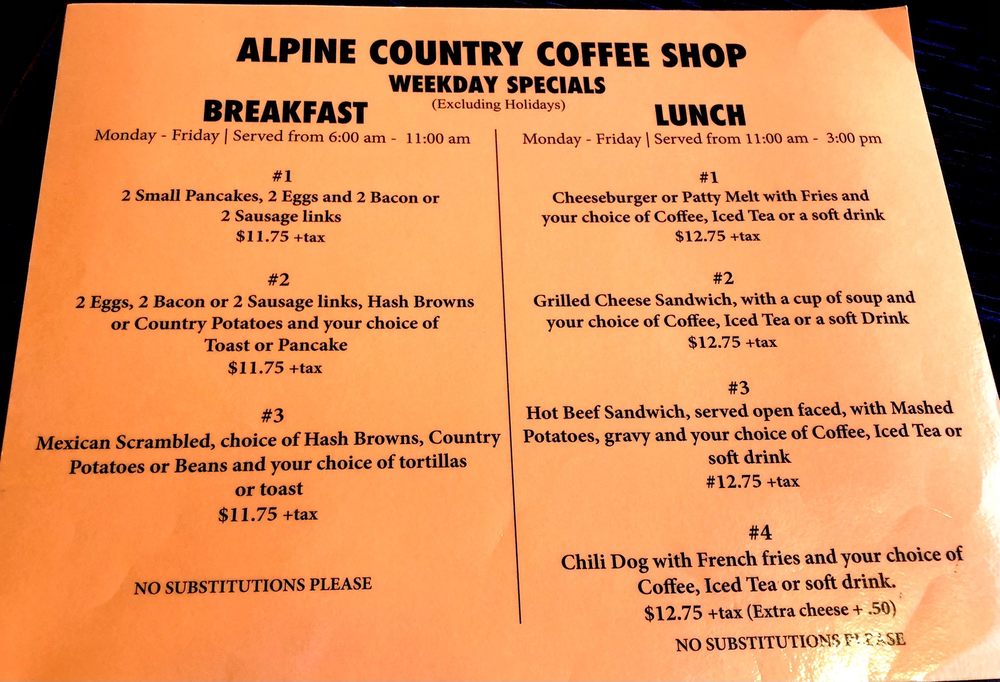 ALPINE COUNTRY COFFEE SHOP
WEEKDAY SPECIALS
(Excluding Holidays)
BREAKFAST
Monday - Friday | Served from 6:00 am - 11:00 am
#1
2 Small Pancakes, 2 Eggs and 2 Bacon or
2 Sausage links
$11.75 +tax
#2
2 Eggs, 2 Bacon or 2 Sausage links, Hash Browns
or Country Potatoes and your choice of
Toast or Pancake
$11.75 +tax
#3
Mexican Scrambled, choice of Hash Browns, Country
Potatoes or Beans and your choice of tortillas
or toast
$11.75 +tax
NO SUBSTITUTIONS PLEASE
LUNCH
Monday - Friday | Served from 11:00 am - 3:00 pm
#1
Cheeseburger or Patty Melt with Fries and
your choice of Coffee, Iced Tea or a soft drink
$12.75 +tax
#2
Grilled Cheese Sandwich, with a cup of soup and
your choice of Coffee, Iced Tea or a soft Drink
$12.75 +tax
#3
Hot Beef Sandwich, served open faced, with Mashed
Potatoes, gravy and your choice of Coffee, Iced Tea or
soft drink
#12.75 +tax
#4
Chili Dog with French fries and your choice of
Coffee, Iced Tea or soft drink.
$12.75 +tax (Extra cheese + .50)
NO SUBSTITUTIONS PLEASE